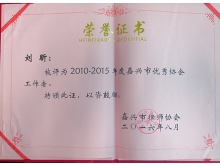 荣誉证书
刘昕:
被评为2010-2015年度嘉兴市优秀协会
工作者。
特颁此证，以资鼓励。
嘉兴市律师协会
二〇一六年八月